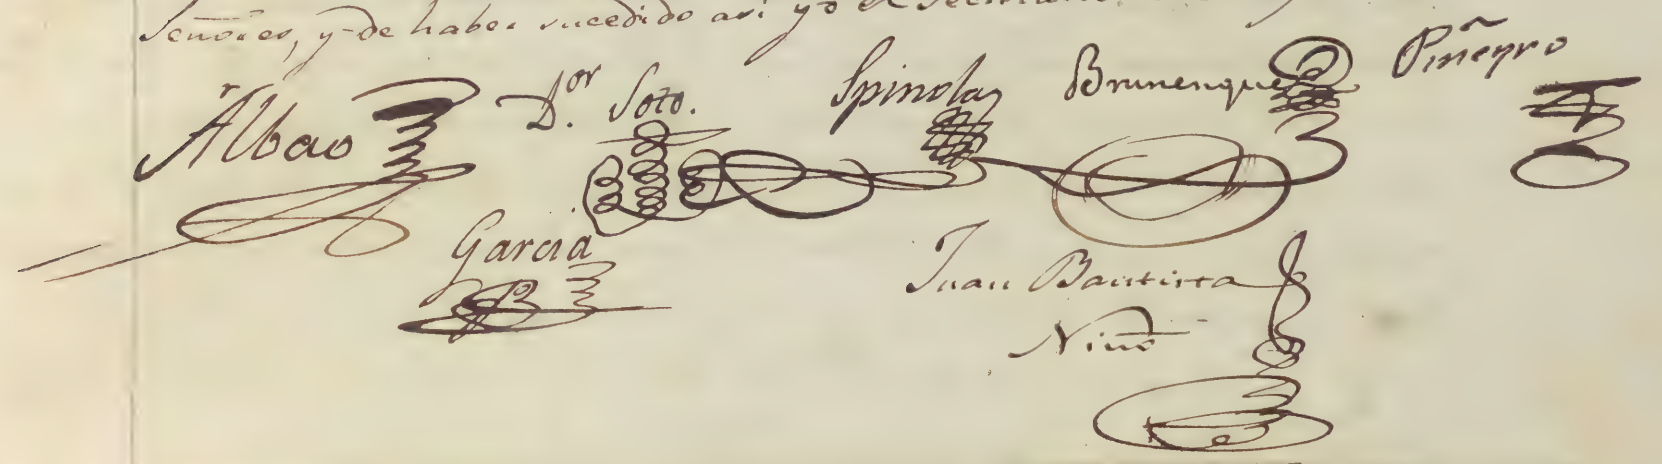 Señores, y de haber sucedido asi yo el Secretario
Albao Dor. Soto. Spinola Brunenque Piñeyro
Garcia Juan Bautista
Niño